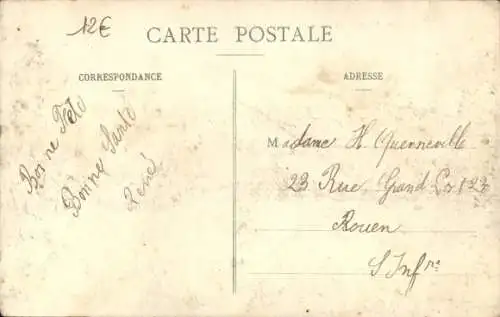 12€
CARTE POSTALE
CORRESPONDANCE
Bonne Fête
Bonne Santé
René
ADRESSE
Madame H. Quenneville
23 Rue Grand
Rouen
S Infre